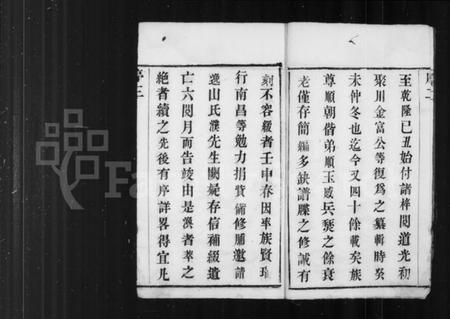 序二
至乾隆己丑始付諸梓閱道光初
聚川金富公等復爲之纂輯時癸
未仲冬也迄今又四十餘載矣族
尊順朝偕弟順玉感兵燹之餘衰
老僅存簡編多缺譜牒之修誠有
刻不容緩者壬申春因率族賢瑞
行南昌等勉力捐貲備修膈邀請
逸山氏濮先生闕疑存信補級遺
亡六閱月而告竣由是渙者萃之
絶者續之先後有序詳畧得宜凡
序三